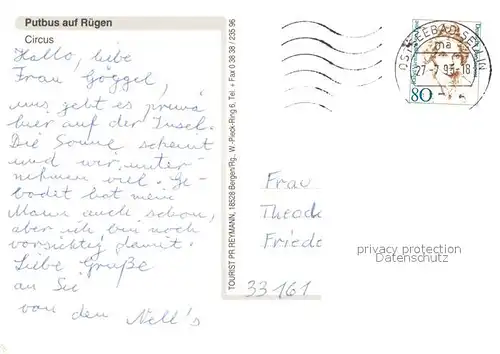 Putbus auf Rügen
Circus
Hallo, liebe
Frau Göggel,
uns geht es prima
hier auf der Insel.
Die Sonne scheint
und wir unter-
nehmen viel. Ge-
badet hat mein
Mann auch schon,
aber ich bin noch
vorsichtig damit.
Liebe Grüße
an Sie
von den Nell's
TOURIST PR REYMANN, 18528 Bergen/Rg., W.-Pieck-Ring 6, Tel. + Fax 0 38 38 / 235 96
OSTSEEBAD SELLIN
ma
80
Frau
Theod
Friede
33161
privacy protection
Datenschutz